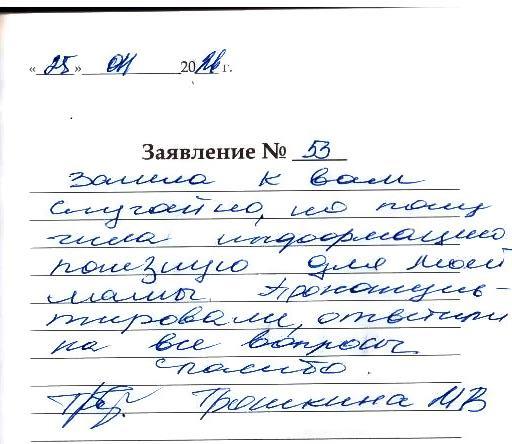 «25» 01 2026 г.
Заявление № 53
Зашла к вам
случайно, но полу
чила информацию
полезную для моей
мамы. Проконсуль-
тировали, ответили
на все вопросы
Спасибо.
Трошкина МВ